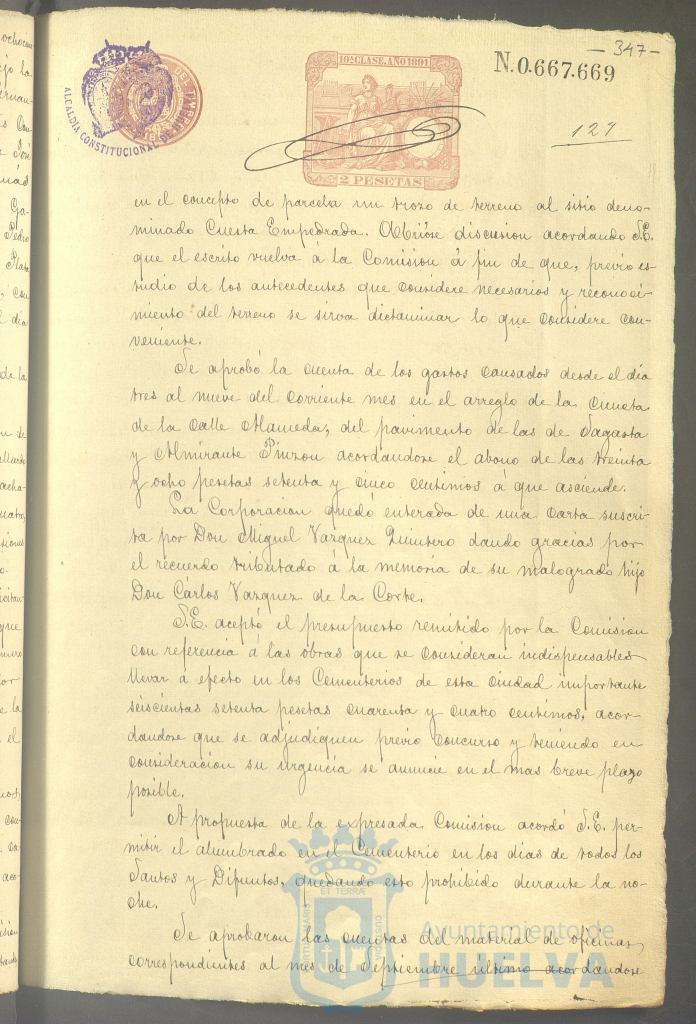 - 347 -
N.0.667.669
127
10ª CLASE. AÑO 1891
2 PESETAS
ALCALDIA CONSTITUCIONAL DE HUELVA
en el concepto de parcela un trozo de terreno al sitio deno-
minado Cuesta Empedrada. Abriose discusion acordando S.E.
que el escrito vuelva á la Comision á fin de que, previo es-
tudio de los antecedentes que considere necesarios y reconoci-
miento del terreno se sirva dictaminar lo que considere con-
veniente.
Se aprobó la cuenta de los gastos causados desde el dia
tres al nueve del corriente mes en el arreglo de la Cuneta
de la Calle Alameda, del pavimento de las de Sagasta
y Almirante Pinzon acordandose el abono de las treinta
y ocho pesetas setenta y cinco centimos á que asciende.
La Corporacion quedó enterada de una carta suscri-
ta por Don Miguel Vazquez Quintero dando gracias por
el recuerdo tributado á la memoria de su malogrado hijo
Don Cárlos Vazquez de la Corte.
S.E. aceptó el presupuesto remitido por la Comision
con referencia á las obras que se consideran indispensables
llevar á efecto en los Cementerios de esta Ciudad importante
seiscientas setenta pesetas cuarenta y cuatro centimos, acor-
dandose que se adjudiquen previo concurso y teniendo en
consideracion su urgencia se anuncie en el mas breve plazo
posible.
A propuesta de la expresada Comision acordó S.E. per-
mitir el alumbrado en el Cementerio en los dias de todos los
Santos y Difuntos, quedando esto prohibido durante la no-
che.
Se aprobaron las cuentas del material de oficinas
correspondientes al mes de Septiembre último acordandose
Ayuntamiento de
HUELVA